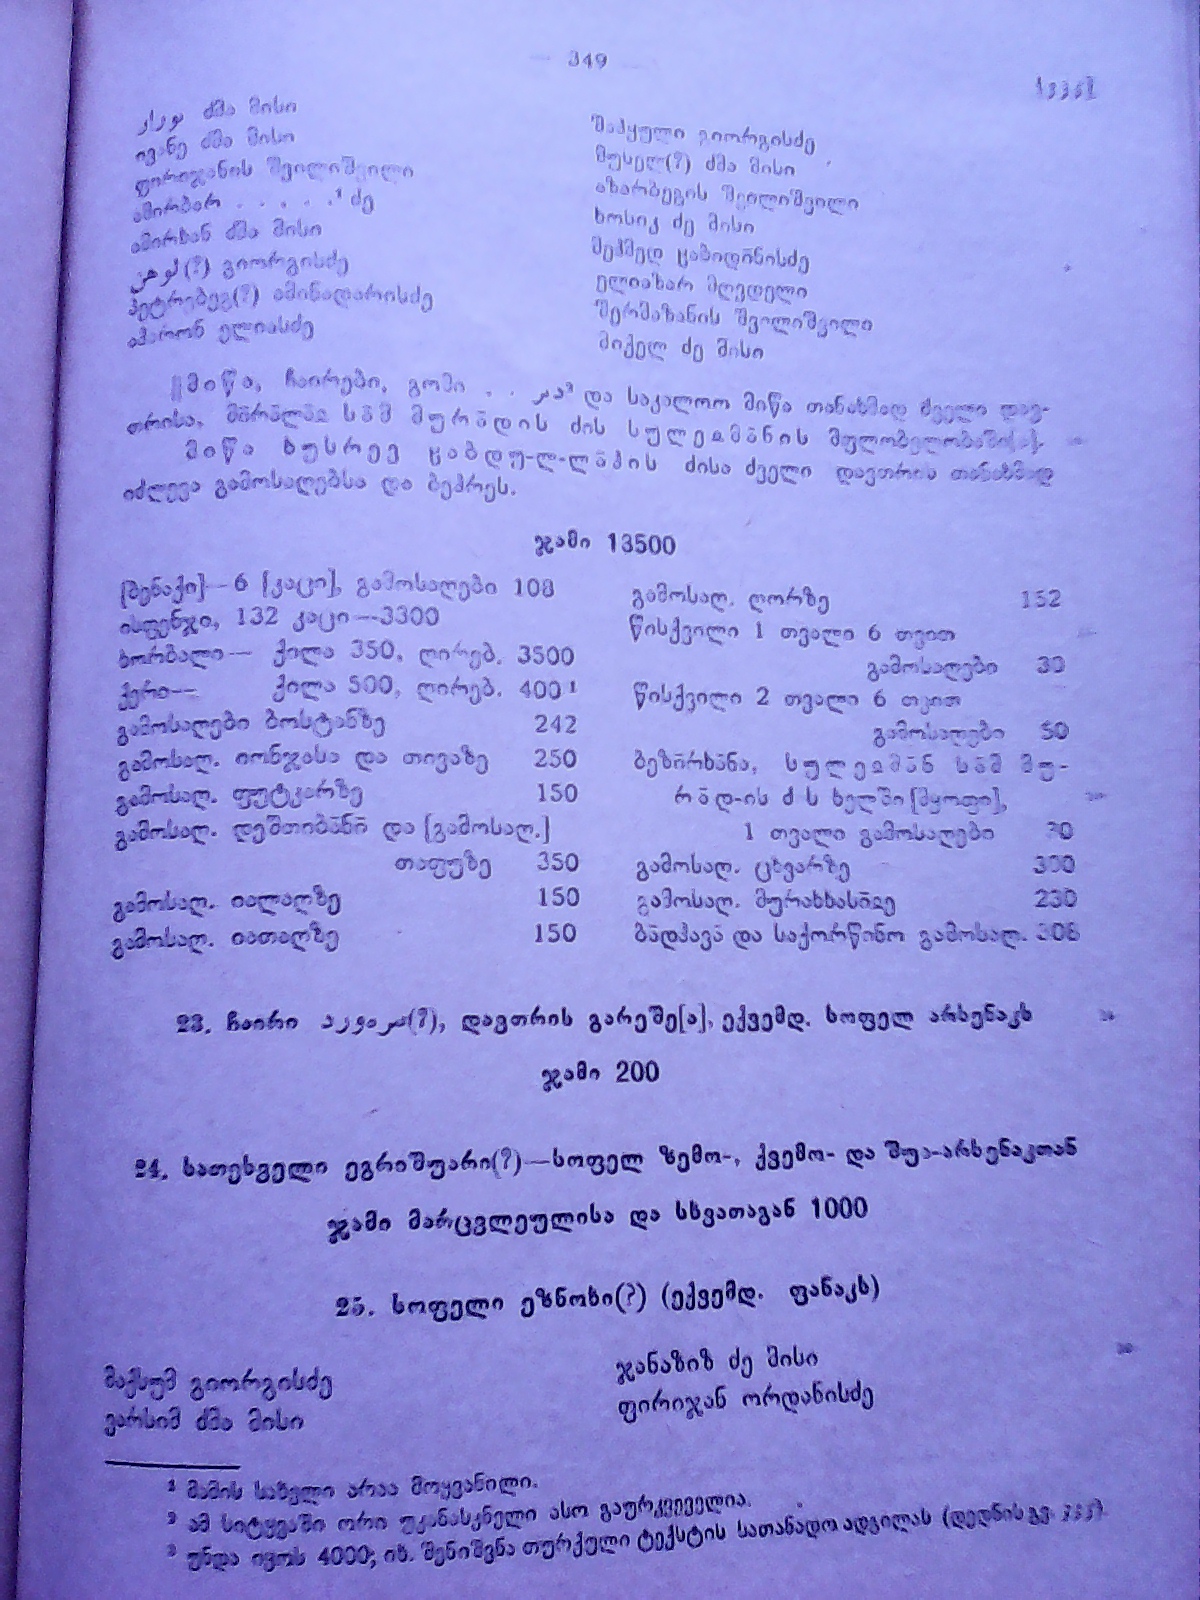 — 349 —
ძმა მისი
ივანე ძმა მისი
ფირიჯანის შვილიშვილი
ამირბარ . . . . .¹ ძე
ამირხან ძმა მისი
(?) გიორგისძე
პეტრებეგ(?) ამინადარისძე
აჰარონ ელიასძე
შაჰყული გიორგისძე
მუსელ(?) ძმა მისი
აზარბეგის შვილიშვილი
ხოსიკ ძე მისი
მეჰმედ ცაბიდინისძე
ელიაზარ მღვდელი
შერმაზანის შვილიშვილი
მიქელ ძე მისი
მიწა, ჩაირები, გომი . . და საკალოო მიწა თანახმად ძველი დავ-
თრისა, სამ მურადის ძის სულეჲმანის მფლობელობაში[ა].
მიწა ხუსრევ ცაბდუ-ლ-ლაჰის ძისა ძველი დავთრის თანახმად
იძლევა გამოსაღებსა და ბეჰრეს.
ჯამი 13500
[ბენაქი]—6 [კაცი], გამოსაღები 108
ისფენჯი, 132 კაცი—3300
ხორბალი— ქილა 350, ღირებ. 3500
ქერი— ქილა 500, ღირებ. 400
გამოსაღები ბოსტანზე 242
გამოსაღ. იონჯასა და თივაზე 250
გამოსაღ. ფუტკარზე 150
გამოსაღ. დეშთიბანი და [გამოსაღ.]
თაფუზე 350
გამოსაღ. იალაღზე 150
გამოსაღ. იათაღზე 150
გამოსაღ. ღორზე 152
წისქვილი 1 თვალი 6 თვით
გამოსაღები 30
წისქვილი 2 თვალი 6 თვით
გამოსაღები 50
ბეზირხანა, სულეჲმან სამ მუ-
რად-ის ძ ს ხელში [მყოფი],
1 თვალი გამოსაღები 30
გამოსაღ. ცხვარზე
გამოსაღ. მურახხასიჲე 230
ბადჰავა და საქორწინო გამოსაღ.
23. ჩაირი (?), დავთრის გარეშე[ა], ექვემდ. სოფელ არსენაკს
ჯამი 200
24. სათესველი ეგრიშუარი(?)—სოფელ ზემო-, ქვემო- და შუა-არსენაკთან
ჯამი მარცვლეულისა და სხვათაგან 1000
25. სოფელი ეზნოხი(?) (ექვემდ. ფანაკს)
მაქსუმ გიორგისძე
ვარსიმ ძმა მისი
ჯანაზიზ ძე მისი
ფირიჯან ორდანისძე
¹ მამის სახელი არაა მოყვანილი.
² ამ სიტყვაში ორი უკანასკნელი ასო გაურკვეველია.
³ უნდა იყოს 4000; იხ. შენიშვნა თურქული ტექსტის სათანადო ადგილას (დედნის გვ.